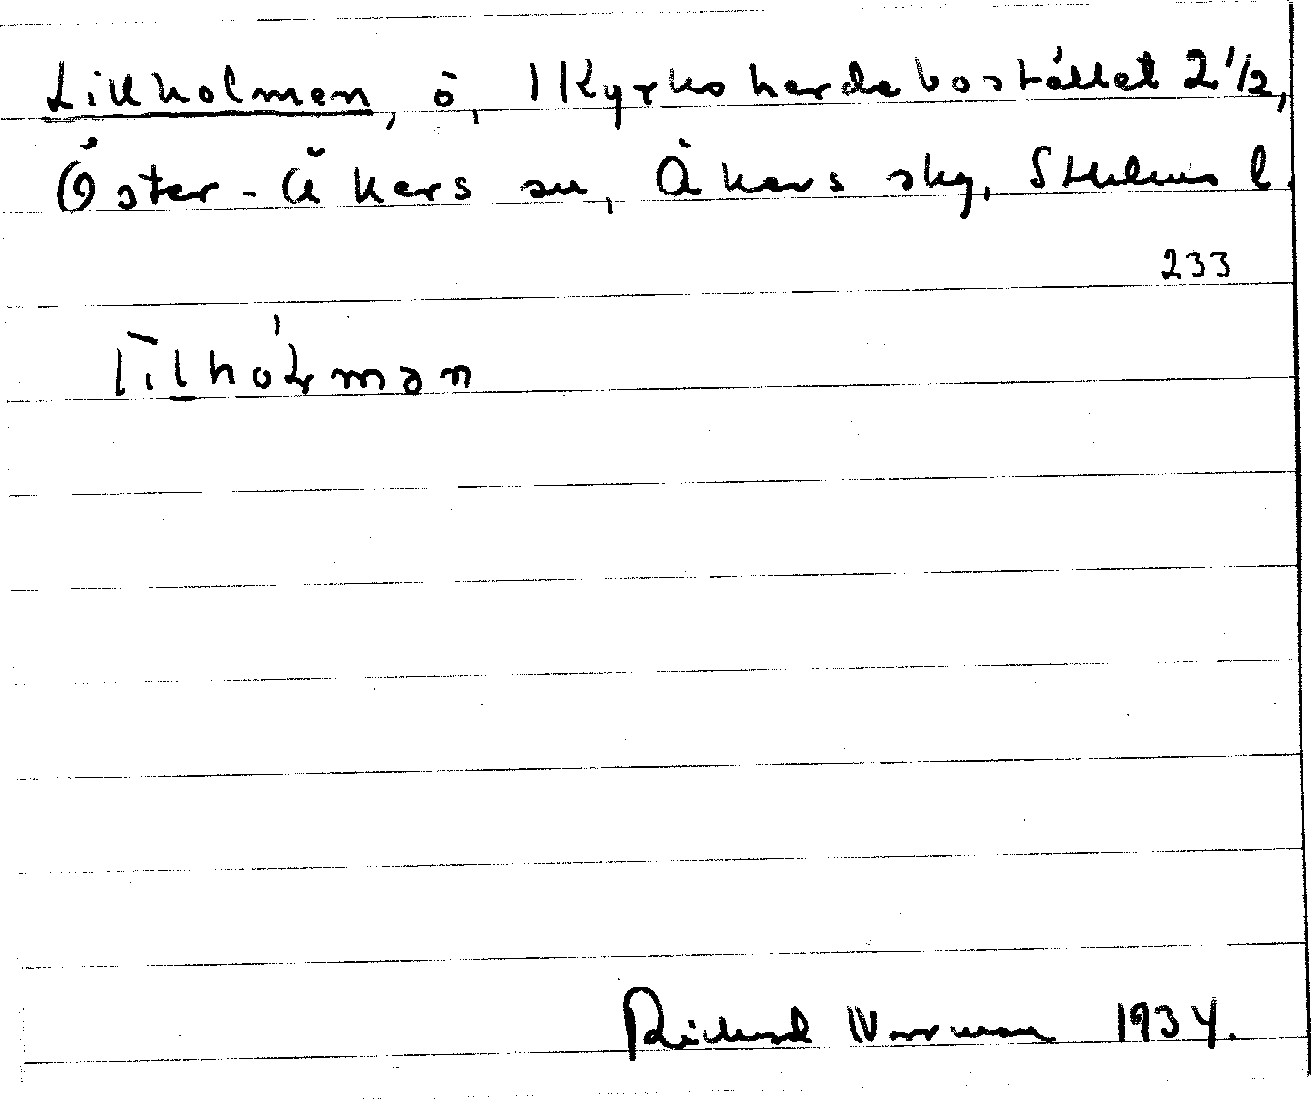 Lillholmen, ö, 1 Kyrkoherdebostället 2 1/2,
Öster-Åkers sn, Åkers sky, Sthlms l.
233
Richard Norrman 1934.